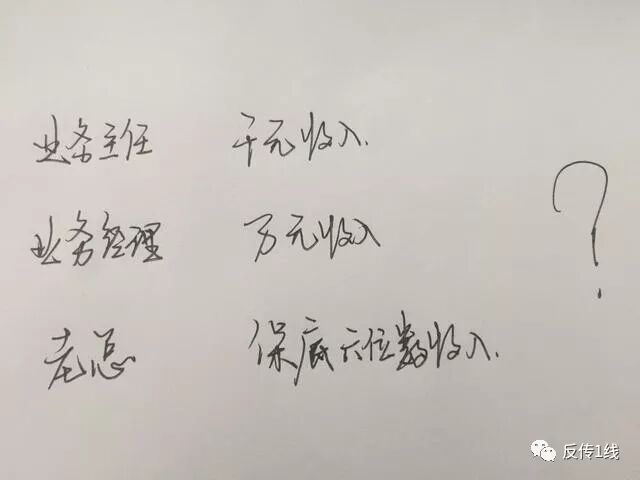 业务主任 千元收入.
业务经理 万元收入
?
老总 保底六位数收入.
反传1线